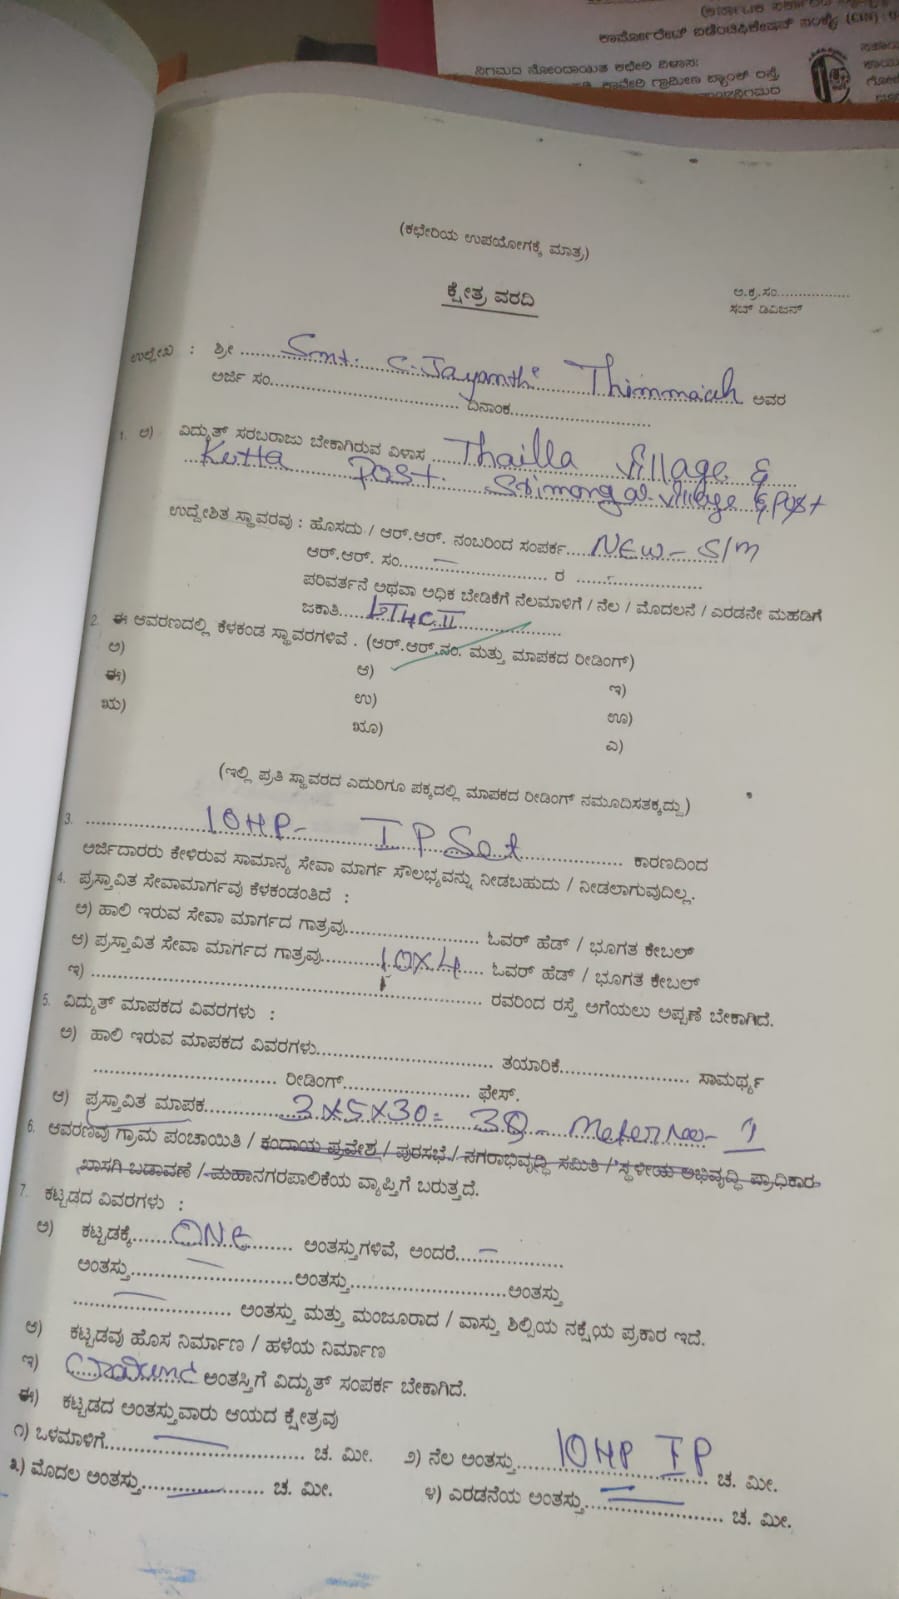 ಕಾರ್ಪೋರೇಟ್ ಐಡೆಂಟಿಫಿಕೇಷನ್ ಸಂಖ್ಯೆ (CIN)
ನಿಗಮದ ನೋಂದಾಯಿತ ಕಛೇರಿ ವಿಳಾಸ:
ಕಾವೇರಿ ಗ್ರಾಮೀಣ ಬ್ಯಾಂಕ್ ರಸ್ತೆ,
(ಕಛೇರಿಯ ಉಪಯೋಗಕ್ಕೆ ಮಾತ್ರ)
ಕ್ಷೇತ್ರ ವರದಿ
ಅ.ಕ್ರ.ಸಂ.................
ಸಬ್ ಡಿವಿಜನ್
ಉಲ್ಲೇಖ : ಶ್ರೀ Smt. C. Jayanthi Thimmaiah ಅವರ
ಅರ್ಜಿ ಸಂ.............................. ದಿನಾಂಕ......................
1. ಅ) ವಿದ್ಯುತ್ ಸರಬರಾಜು ಬೇಕಾಗಿರುವ ವಿಳಾಸ Thailla Village &
Kutta Post. Srimongal Village & Post
ಉದ್ದೇಶಿತ ಸ್ಥಾವರವು : ಹೊಸದು / ಆರ್.ಆರ್. ನಂಬರಿಂದ ಸಂಪರ್ಕ NEW - S/M
ಆರ್.ಆರ್. ಸಂ. — ರ -
ಪರಿವರ್ತನೆ ಅಥವಾ ಅಧಿಕ ಬೇಡಿಕೆಗೆ ನೆಲಮಾಳಿಗೆ / ನೆಲ / ಮೊದಲನೆ / ಎರಡನೇ ಮಹಡಿಗೆ
ಜಕಾತಿ
2. ಈ ಆವರಣದಲ್ಲಿ ಕೆಳಕಂಡ ಸ್ಥಾವರಗಳಿವೆ . (ಆರ್.ಆರ್.ನಂ. ಮತ್ತು ಮಾಪಕದ ರೀಡಿಂಗ್)
ಅ) ಆ) ಇ)
ಈ) ಉ) ಊ)
ಋ) ೠ) ಎ)
(ಇಲ್ಲಿ ಪ್ರತಿ ಸ್ಥಾವರದ ಎದುರಿಗೂ ಪಕ್ಕದಲ್ಲಿ ಮಾಪಕದ ರೀಡಿಂಗ್ ನಮೂದಿಸತಕ್ಕದ್ದು)
3. 10HP- IP Set ಕಾರಣದಿಂದ
ಅರ್ಜಿದಾರರು ಕೇಳಿರುವ ಸಾಮಾನ್ಯ ಸೇವಾ ಮಾರ್ಗ ಸೌಲಭ್ಯವನ್ನು ನೀಡಬಹುದು / ನೀಡಲಾಗುವುದಿಲ್ಲ.
4. ಪ್ರಸ್ತಾವಿತ ಸೇವಾಮಾರ್ಗವು ಕೆಳಕಂಡಂತಿದೆ :
ಅ) ಹಾಲಿ ಇರುವ ಸೇವಾ ಮಾರ್ಗದ ಗಾತ್ರವು...................... ಓವರ್ ಹೆಡ್ / ಭೂಗತ ಕೇಬಲ್
ಆ) ಪ್ರಸ್ತಾವಿತ ಸೇವಾ ಮಾರ್ಗದ ಗಾತ್ರವು 10X4 ಓವರ್ ಹೆಡ್ / ಭೂಗತ ಕೇಬಲ್
ಇ) ........................................ ರವರಿಂದ ರಸ್ತೆ ಅಗೆಯಲು ಅಪ್ಪಣೆ ಬೇಕಾಗಿದೆ.
5. ವಿದ್ಯುತ್ ಮಾಪಕದ ವಿವರಗಳು :
ಅ) ಹಾಲಿ ಇರುವ ಮಾಪಕದ ವಿವರಗಳು........................ ತಯಾರಿಕೆ.................. ಸಾಮರ್ಥ್ಯ
......................... ರೀಡಿಂಗ್.................. ಫೇಸ್.
ಆ) ಪ್ರಸ್ತಾವಿತ ಮಾಪಕ 3X5X30= 3Q - Meter No - 1
6. ಆವರಣವು ಗ್ರಾಮ ಪಂಚಾಯಿತಿ / ಕಂದಾಯ ಪ್ರವೇಶ / ಪುರಸಭೆ / ನಗರಾಭಿವೃದ್ಧಿ ಸಮಿತಿ / ಸ್ಥಳೀಯ ಅಭಿವೃದ್ಧಿ ಪ್ರಾಧಿಕಾರ
ಖಾಸಗಿ ಬಡಾವಣೆ / ಮಹಾನಗರಪಾಲಿಕೆಯ ವ್ಯಾಪ್ತಿಗೆ ಬರುತ್ತದೆ.
7. ಕಟ್ಟಡದ ವಿವರಗಳು :
ಅ) ಕಟ್ಟಡಕ್ಕೆ ONE ಅಂತಸ್ತುಗಳಿವೆ, ಅಂದರೆ —
ಅಂತಸ್ತು — ಅಂತಸ್ತು........................ಅಂತಸ್ತು
— ಅಂತಸ್ತು ಮತ್ತು ಮಂಜೂರಾದ / ವಾಸ್ತು ಶಿಲ್ಪಿಯ ನಕ್ಷೆಯ ಪ್ರಕಾರ ಇದೆ.
ಆ) ಕಟ್ಟಡವು ಹೊಸ ನಿರ್ಮಾಣ / ಹಳೆಯ ನಿರ್ಮಾಣ
ಇ) ಅಂತಸ್ತಿಗೆ ವಿದ್ಯುತ್ ಸಂಪರ್ಕ ಬೇಕಾಗಿದೆ.
ಈ) ಕಟ್ಟಡದ ಅಂತಸ್ತುವಾರು ಆಯದ ಕ್ಷೇತ್ರವು
೧) ಒಳಮಾಳಿಗೆ — ಚ. ಮೀ. ೨) ನೆಲ ಅಂತಸ್ತು 10HP IP ಚ. ಮೀ.
೩) ಮೊದಲ ಅಂತಸ್ತು — ಚ. ಮೀ. ೪) ಎರಡನೆಯ ಅಂತಸ್ತು — ಚ. ಮೀ.